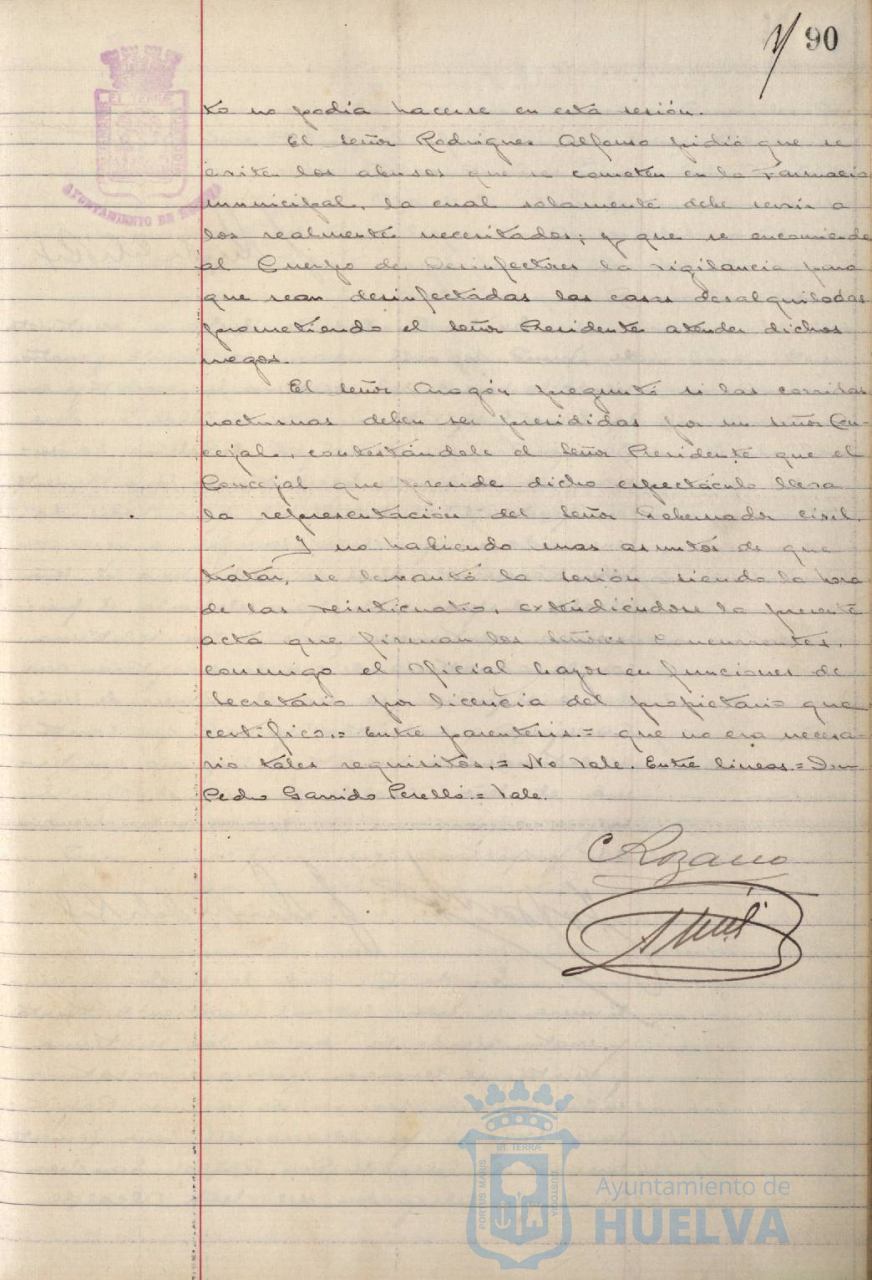 90
to no podía hacerse en esta sesión.
El señor Rodrigues Alfonso pidió que se
eviten los abusos que se cometen en la Farmacia
municipal, la cual solamente debe servir a
los realmente necesitados; y que se encomiende
al Cuerpo de Desinfectores la vigilancia para
que sean desinfectadas las casas desalquiladas
prometiendo el señor Presidente atender dichos
ruegos.
El señor Aragón preguntó si las corridas
nocturnas deben ser presididas por un señor Con-
cejal, contestándole el señor Presidente que el
Concejal que preside dicho espectáculo lleva
la representación del señor Gobernador civil.
Y no habiendo mas asuntos de que
tratar, se levantó la sesión siendo la hora
de las veinticuatro, extendiéndose la presente
acta que firman los señores concurrentes,
conmigo el Oficial Mayor en funciones de
Secretario por licencia del propietario que
certifico.= Entre parenteris.= que no era necesa-
rio tales requisitos.= No Vale. Entre lineas.= Don
Pedro Garrido Perelló.= Vale.
AYUNTAMIENTO DE HUELVA
PORTUS MARIS
ET TERRÆ
CUSTODIA
Ayuntamiento de
HUELVA